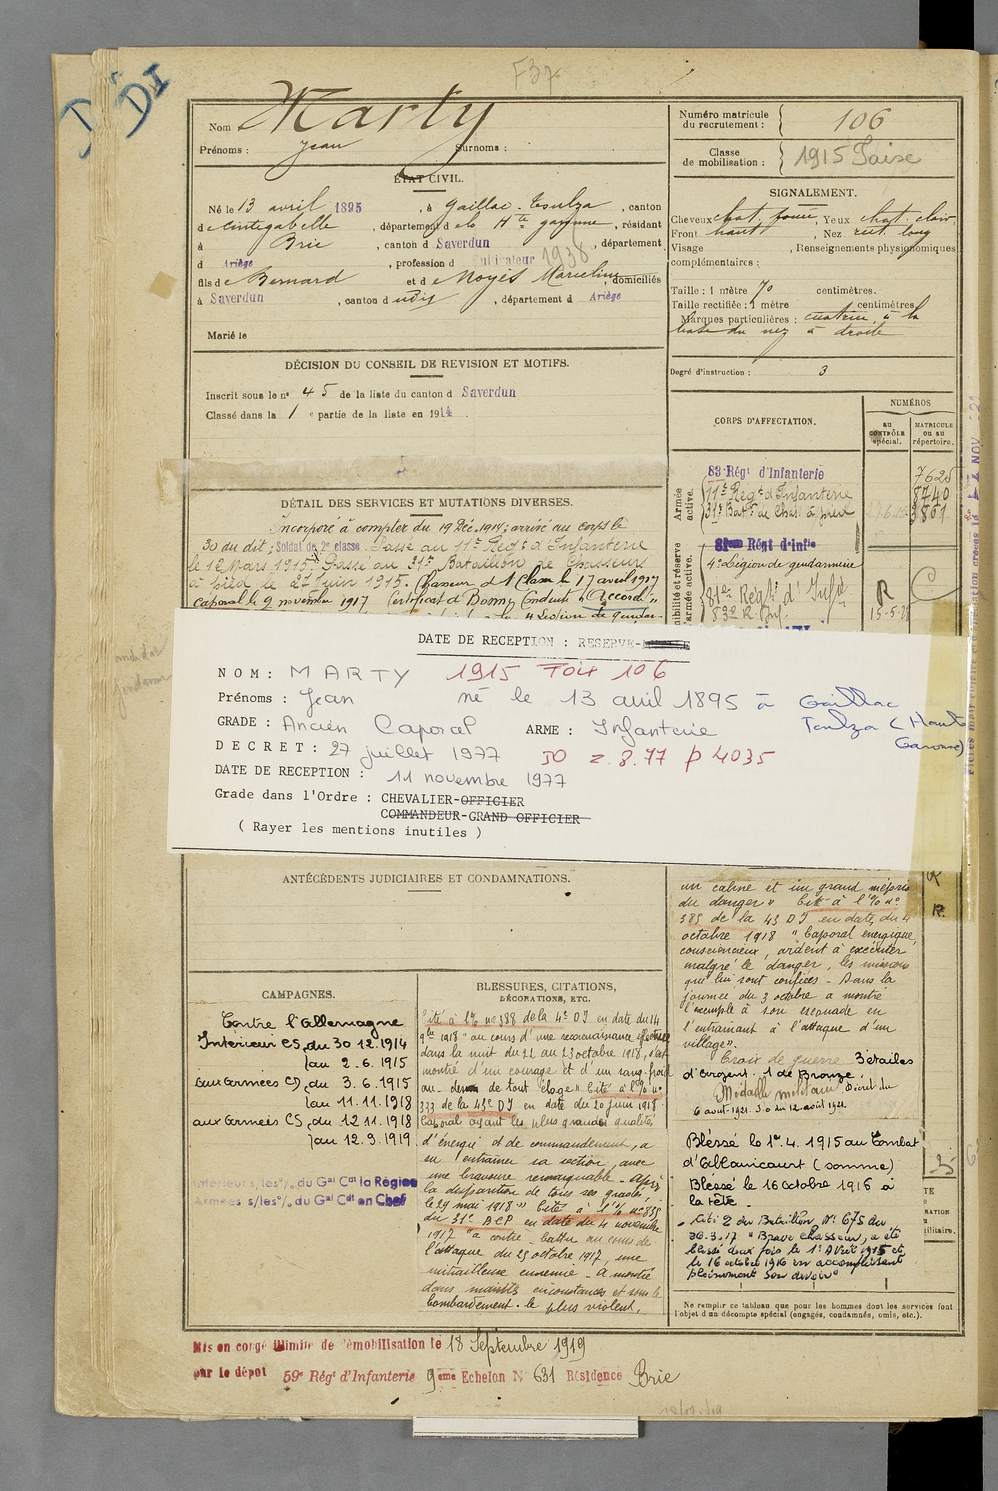 F37
DI
Nom Marty
Prénoms : Jean Surnoms :
ÉTAT CIVIL.
Né le 13 avril 1895, à Gaillac-Toulza, canton
de Cintegabelle, département de la Hte garonne, résidant
à Brie, canton d Saverdun, département
d Ariège, profession d Cultivateur 1938
fils de Bernard et de Noyès Marceline, domiciliés
à Saverdun, canton d udit, département d Ariège
Marié le
Numéro matricule
du recrutement : 106
Classe
de mobilisation : 1915
SIGNALEMENT.
Cheveux chat. foncé, Yeux chat. clair
Front haut, Nez rect. long
Visage , Renseignements physionomiques
complémentaires :
Taille : 1 mètre 70 centimètres.
Taille rectifiée : 1 mètre centimètres.
Marques particulières : cicatrice à la
base du nez à droite
Degré d'instruction : 3
DÉCISION DU CONSEIL DE REVISION ET MOTIFS.
Inscrit sous le n° 45 de la liste du canton d Saverdun
Classé dans la 1 e partie de la liste en 1914.
CORPS D'AFFECTATION.
NUMÉROS
au CONTRÔLE spécial.
MATRICULE ou au répertoire.
Armée active.
83e Régt d'Infanterie 7625
11e Régt d'Infanterie 8740
31e Batn de Chass à pied 3861
81me Régt d'Infie
4e Légion de gendarmerie
81e Régt d'Infie R C
83e R. Inf. 15-5-28
DÉTAIL DES SERVICES ET MUTATIONS DIVERSES.
Incorporé à compter du 19 Déc. 1914; arrivé au corps le
30 du dit; Soldat de 2e classe. Passé au 11e Régt d'Infanterie
le 12 Mars 1915. Passé au 31e Bataillon de Chasseurs
à pied le 2 Juin 1915. Chasseur de 1e Classe le 17 avril 1917
Caporal le 9 novembre 1917. Certificat de Bonne Conduite "Accordé"
DATE DE RECEPTION : RESERVE-
NOM : MARTY 1915 FOIX 106
Prénoms : Jean né le 13 avril 1895 à Gaillac
Toulza (Haute
Garonne)
GRADE : Ancien Caporal ARME : Infanterie
DECRET : 27 juillet 1977 JO 2.8.77 p 4035
DATE DE RECEPTION : 11 novembre 1977
Grade dans l'Ordre : CHEVALIER-OFFICIER
COMMANDEUR-GRAND OFFICIER
( Rayer les mentions inutiles )
ANTÉCÉDENTS JUDICIAIRES ET CONDAMNATIONS.
CAMPAGNES.
Contre l'Allemagne
Intérieur CS, du 30.12.1914
au 2.6.1915
aux Armées CD, du 3.6.1915
au 11.11.1918
aux Armées CS, du 12.11.1918
au 12.9.1919
Intérieur s/les o/. du Gal Cdt la Région
Armées s/les o/. du Gal Cdt en Chef
BLESSURES, CITATIONS,
DÉCORATIONS, ETC.
Cité à l'O/o no 388 de la 43e DI en date du 14
9bre 1918 "au cours d'une reconnaissance effectuée
dans la nuit du 22 au 23 octobre 1918, s'est
montré d'un courage et d'un sang-froid
au-dessus de tout éloge" Cité à l'O/o no
333 de la 43e DI en date du 20 juin 1918
Caporal ayant les plus grandes qualités
d'énergie et de commandement, a
su entraîner sa section, avec
une bravoure remarquable. Après
la disparition de tous ses gradés
le 29 mai 1918" Cité à l'O/o no 835
du 31e BCP en date du 4 novembre
1917 "a contre-battu au cours de
l'attaque du 23 octobre 1917, une
mitrailleuse ennemie. A montré
dans maintes circonstances et sous le
bombardement le plus violent,
un calme et un grand mépris
du danger" Cité à l'O/o no
385 de la 43 DI en date du 4
octobre 1918 "Caporal énergique,
consciencieux, ardent à exécuter
malgré le danger, les missions
qui lui sont confiées - Dans la
journée du 3 octobre a montré
l'exemple à son escouade en
l'entraînant à l'attaque d'un
village".
Croix de guerre 3 étoiles
d'argent. 1 de Bronze.
Médaille militaire Décret du
6 août 1921. J.O du 12 août 1921.
Bléssé le 1er.4.1915 au Combat
d'Allaincourt (Somme)
Bléssé le 16 octobre 1916 à
la tête.
Cité O du Bataillon No 675 du
30.3.17 "Brave chasseur, a été
blessé deux fois le 1er Avril 1915 et
le 16 octobre 1916 en accomplissant
pleinement son devoir"
Ne remplir ce tableau que pour les hommes dont les services font
l'objet d'un décompte spécial (engagés, condamnés, omis, etc.).
Mis en congé illimité de démobilisation le 18 Septembre 1919
par le dépôt 59e Régt d'Infanterie 9ème Echelon No 631 Résidence Brie